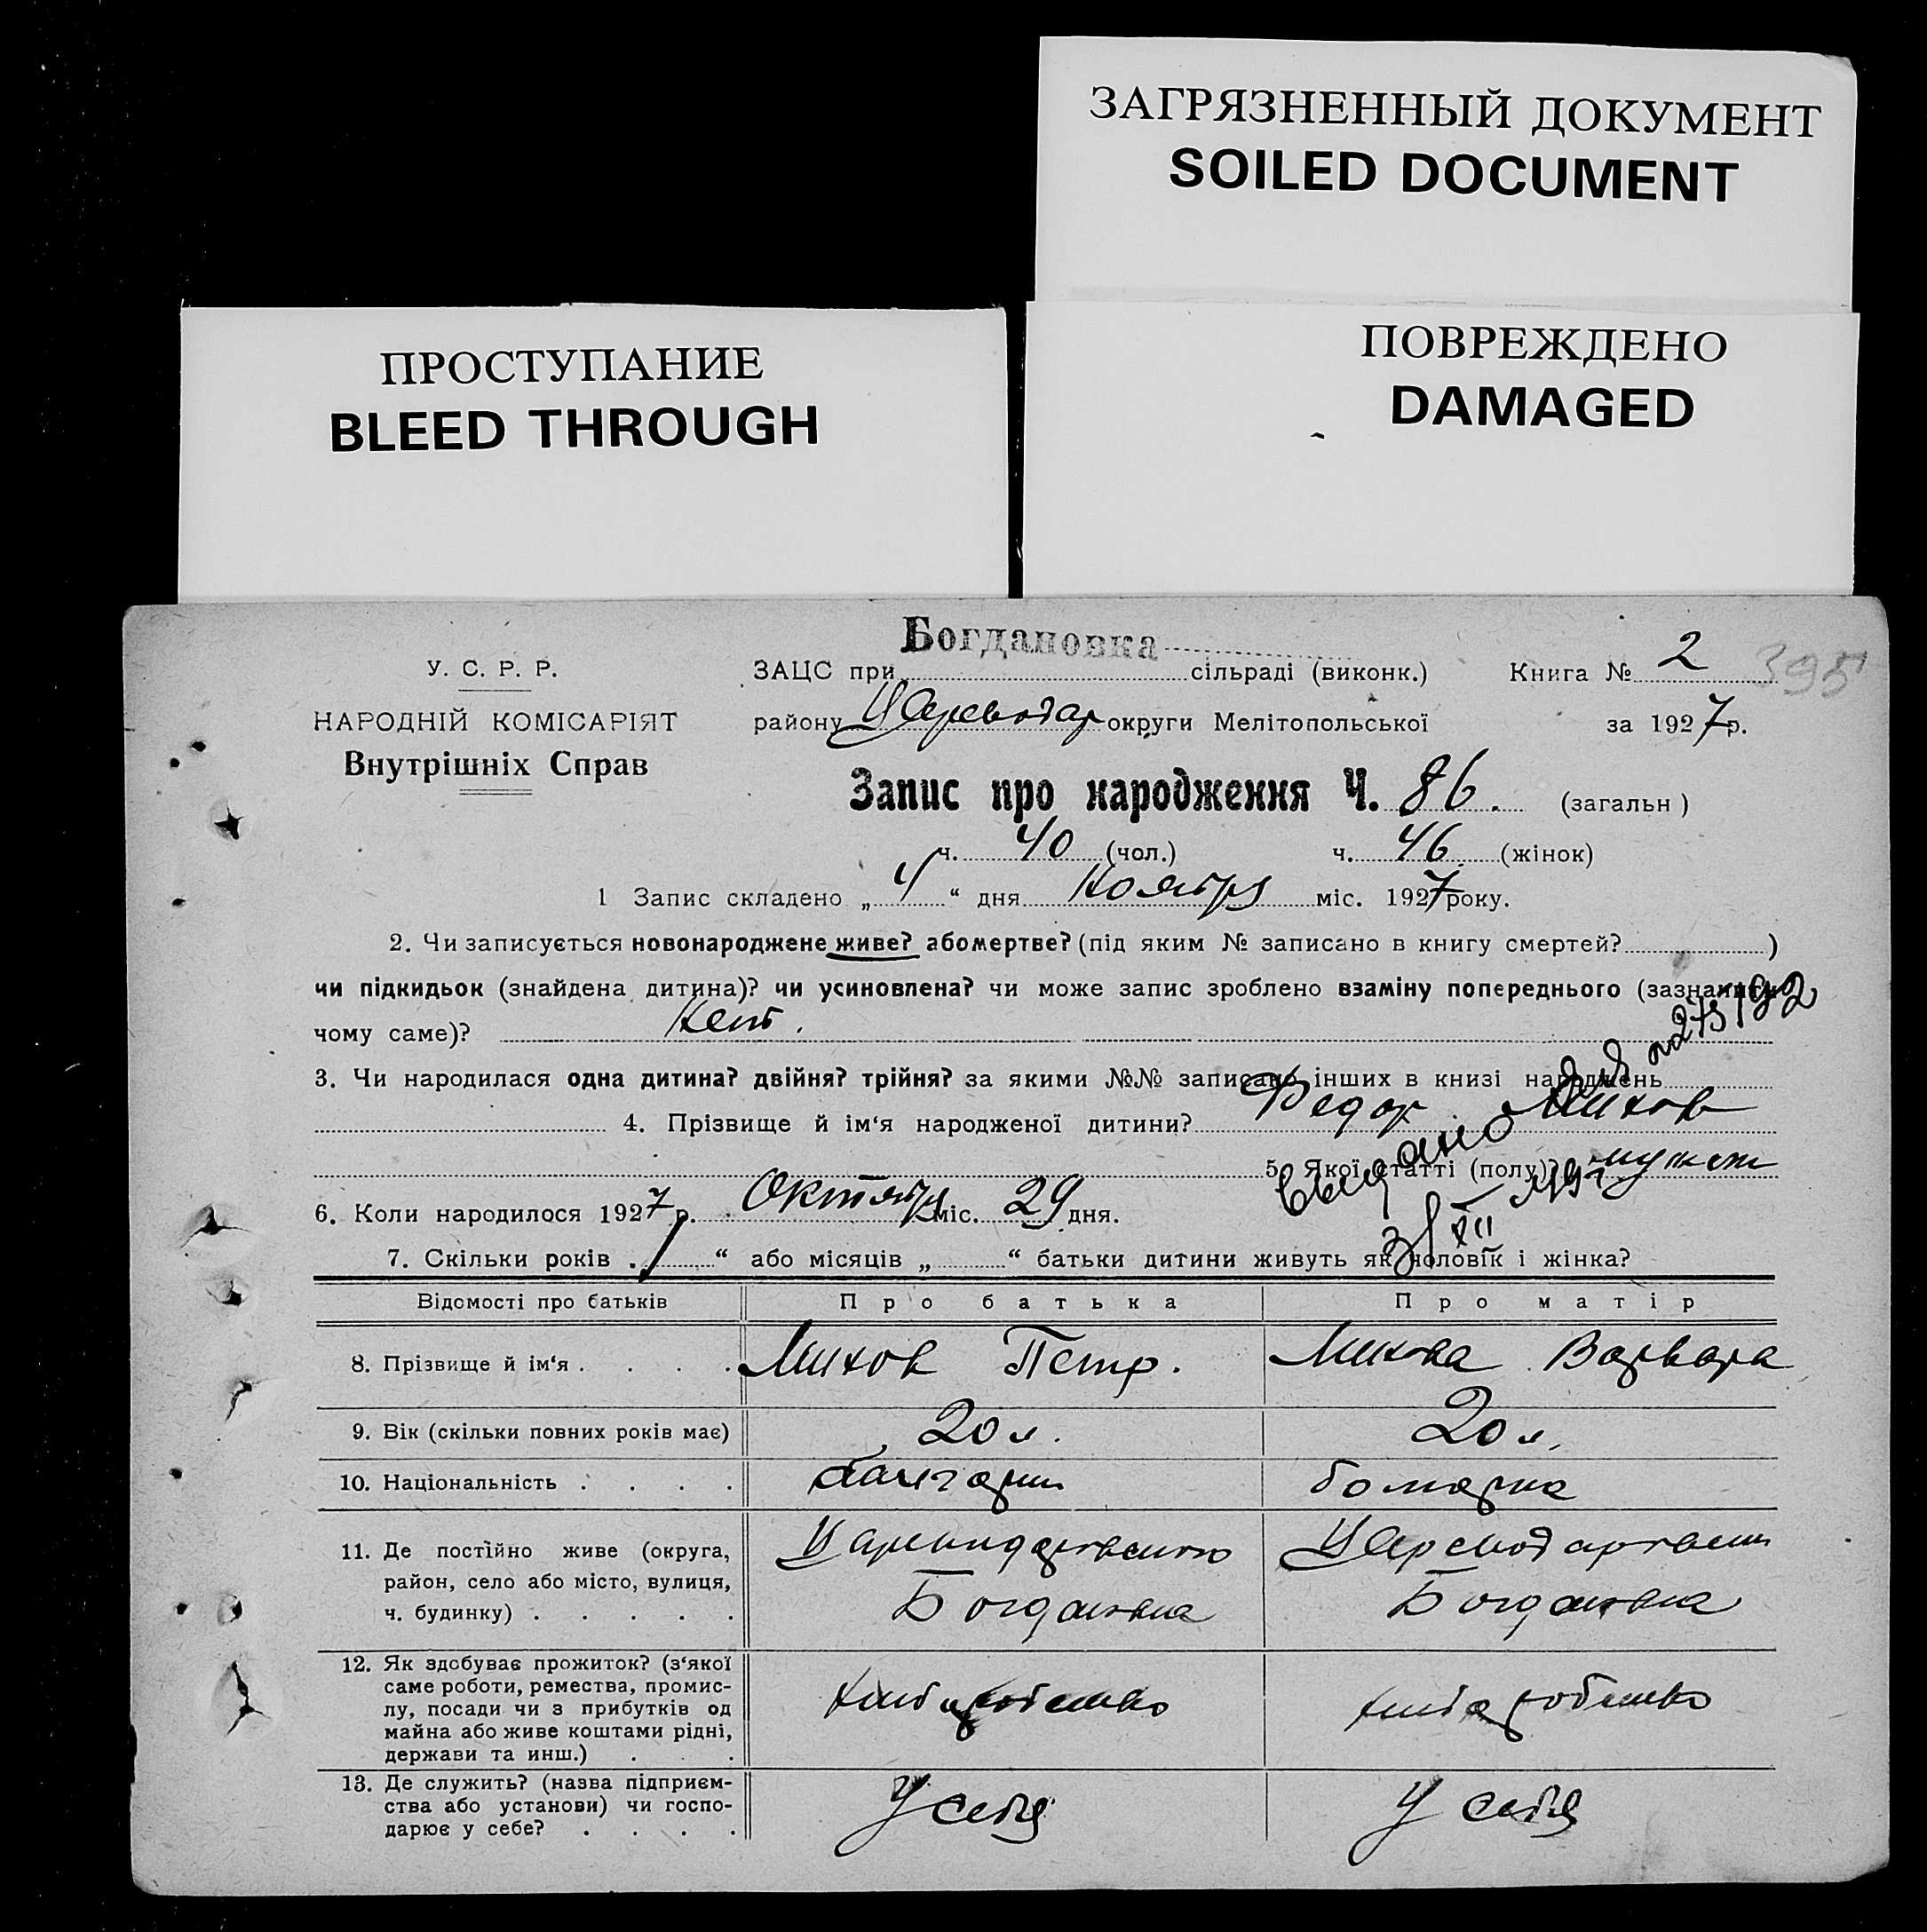 ЗАГРЯЗНЕННЫЙ ДОКУМЕНТ
SOILED DOCUMENT
ПРОСТУПАНИЕ
BLEED THROUGH
ПОВРЕЖДЕНО
DAMAGED
Богдановка
У. С. Р. Р.
ЗАЦС при сільраді (виконк.) Книга № 2 395
НАРОДНІЙ КОМІСАРІЯТ
району Цареводар округи Мелітопольської за 1927 р.
Внутрішніх Справ
Запис про народження Ч. 86. (загальн)
ч. 40 (чол.) ч. 46 (жінок)
1 Запис складено „ 4 “ дня Ноября міс. 1927 року.
2. Чи записується новонароджене живе? або мертве? (під яким № записано в книгу смертей? )
чи підкидьок (знайдена дитина)? чи усиновлена? чи може запис зроблено взаміну попереднього (зазначити
чому саме)? Нет.
3. Чи народилася одна дитина? двійня? трійня? за якими №№ записано інших в книзі народжень
4. Прізвище й ім‘я народженої дитини? Федор Михов
5. Якої статті (полу)? мужск
6. Коли народилося 1927 р. Октября міс. 29 дня.
7. Скільки років 1 “ або місяців „ “ батьки дитини живуть як чоловік і жінка?
выдано
31/XII
Відомості про батьків Про батька Про матір
8. Прізвище й ім‘я . . . . Михов Петр. Михова Варвара
9. Вік (скільки повних років має) 20 л. 20 л.
10. Національність . . . . болгарин болгарка
11. Де постійно живе (округа,
район, село або місто, вулиця,
ч. будинку) . . . . .
Богдановка Богдановка
12. Як здобуває прожиток? (з‘якої
саме роботи, ремества, промис-
лу, посади чи з прибутків од
майна або живе коштами рідні,
держави та инш.) . . .
хлібаробство хлібаробство
13. Де служить? (назва підприєм-
ства або установи) чи госпо-
дарює у себе? . . . .
У себя У себя